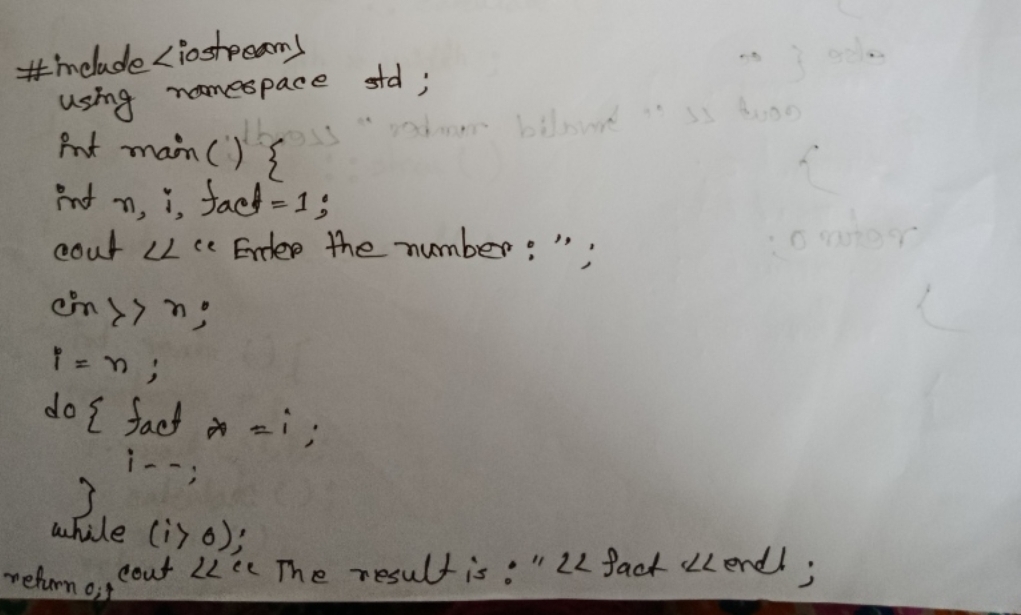 #include <iostream>
using namespace std ;
int main() {
int n, i, fact = 1;
cout << "Enter the number : " ;
cin >> n;
i = n ;
do { fact * = i ;
i--;
}
while (i > 0);
cout << "The result is : " << fact << endl ;
return 0;